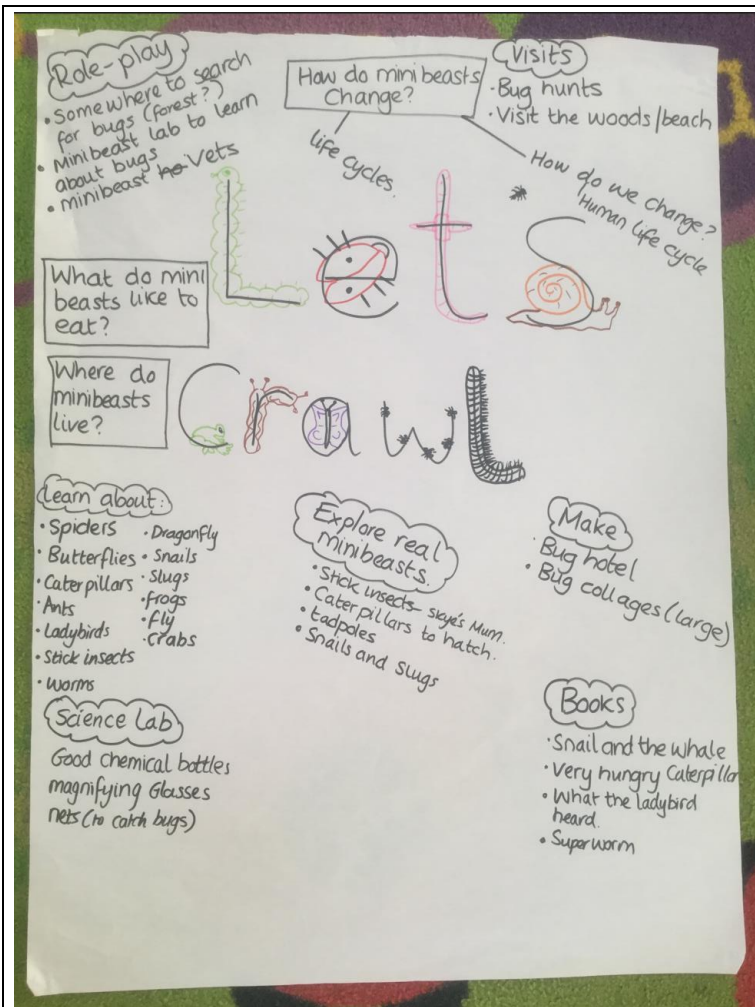 Role-play
• Somewhere to search
for bugs (forest?)
• Minibeast lab to learn
about bugs
• minibeast Vets
How do minibeasts
Change?
life cycles.
How do we change?
Human life cycle
Visits
• Bug hunts
• Visit the woods/beach
Lets
Crawl
What do mini
beasts like to
eat?
Where do
minibeasts
live?
Learn about:
• Spiders
• Butterflies
• Caterpillars
• Ants
• Ladybirds
• Stick insects
• worms
• Dragonfly
• Snails
• Slugs
• frogs
• fly
• crabs
Explore real
minibeasts.
• Stick insects - Skye's Mum.
• Caterpillars to hatch.
• tadpoles
• Snails and Slugs
Make
• Bug hotel
• Bug collages (large)
Science Lab
Good chemical bottles
magnifying Glasses
nets (to catch bugs)
Books
• Snail and the whale
• Very hungry Caterpillar
• What the ladybird
heard.
• Superworm